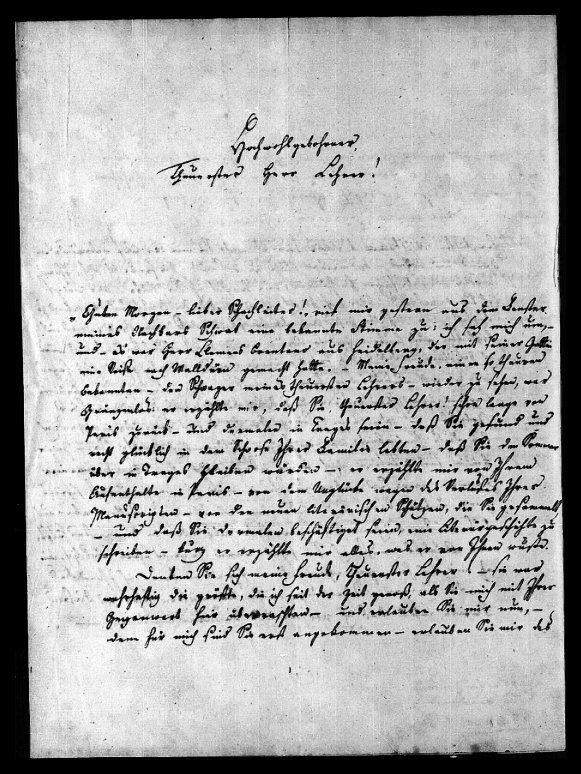 Hochwohlgebohrner,
Theuerster Herr Lehrer!
"Guten Morgen – lieber Schachleiter! rief mir gestern aus dem Fenster
meines Nachbars Schwab eine bekannte Stimme zu; ich sah mich um, –
und – es war Herr Klemens Brentano aus Heidelberg, der mit seiner Gattin
eine Reise nach Walldürn gemacht hatte. – Meine Freude, einen so theuren
bekannten – den Schwager meines theuersten Lehrers – wieder zu sehen, war
Gränzenlos: er erzählte mir, daß Sie, theuerster Lehrer! schon lange von
Paris zurück – und dermalen in Trages seien – daß Sie gesund und
recht glücklich in dem Schoose Ihrer Familie lebten – daß Sie den Sommer
über in Trages bleiben würden –; er erzählte mir von Ihrem
Aufenthalte in Paris – von dem Unglücke wegen des Verlustes Ihrer
Manuscripten – von den neuen literärischen Schätzen, die Sie gesammelt
– und daß Sie dermalen beschäftiget seien, eine Literärgeschichte zu
schreiben – kurz er erzählte mir alles, was er von Ihnen wußte.
Denken Sie sich meine Freude, Theuerster Lehrer! – sie war
wahrhaftig die größte, die ich seit der Zeit genoß, als Sie mich mit Ihrer
Gegenwart hier überraschten – und erlauben Sie mir nun, –
denn für mich sind Sie erst angekommen – erlauben Sie mir des